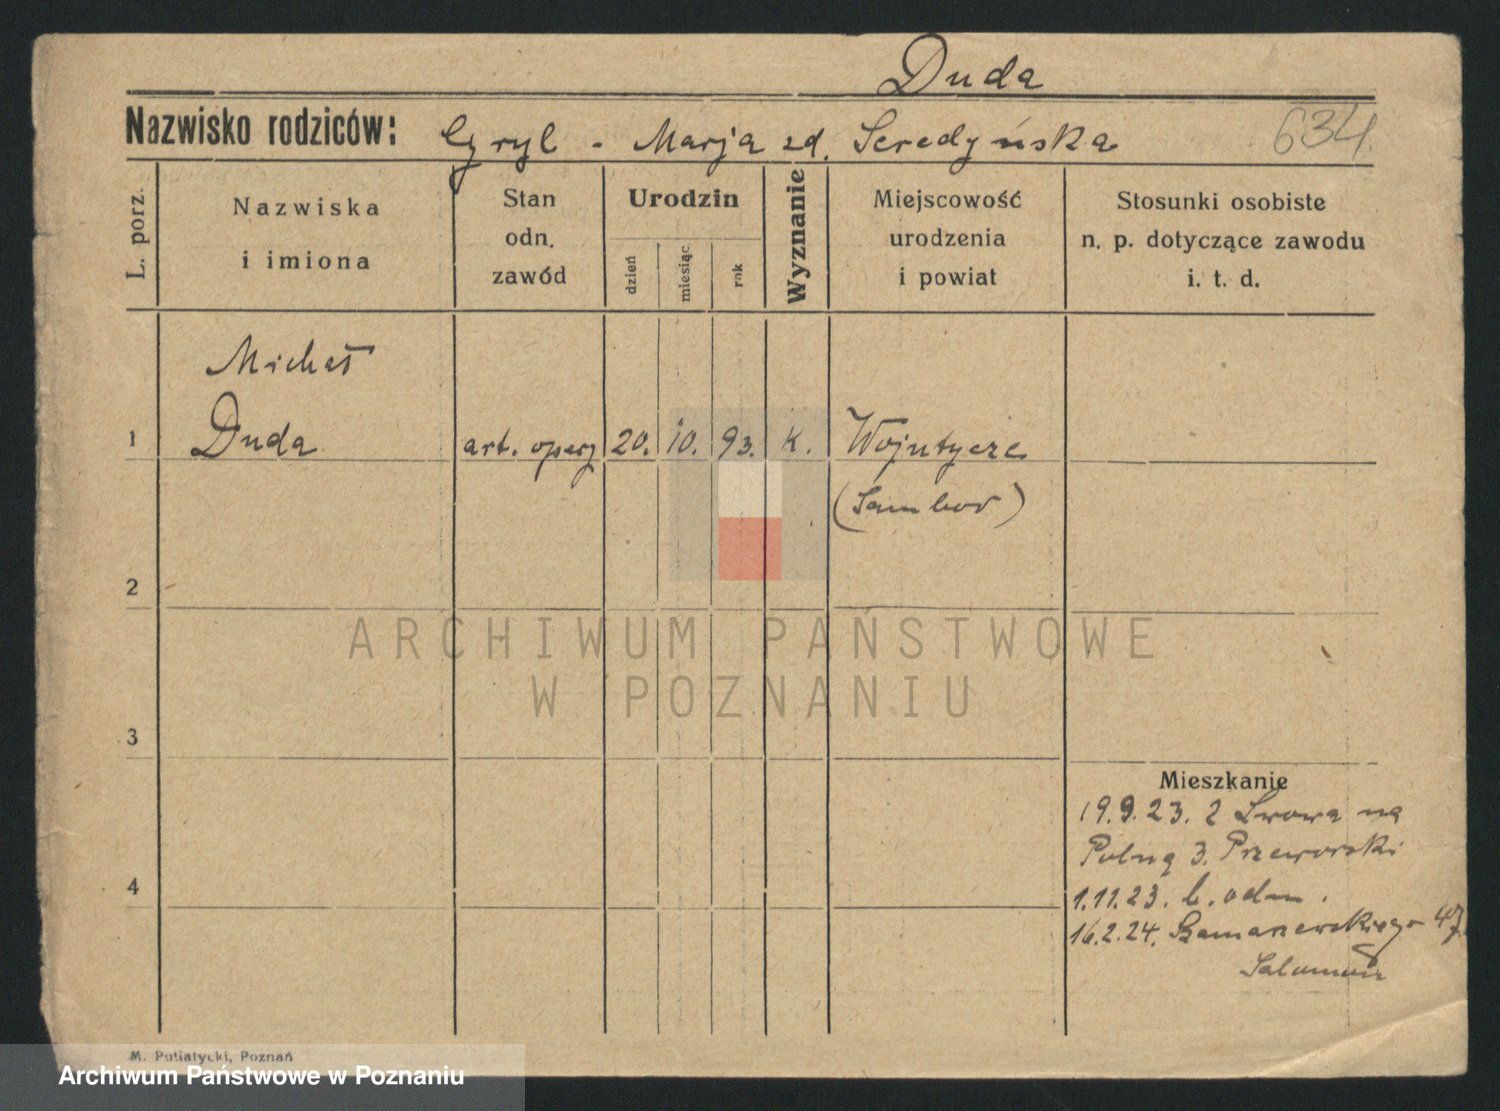 Duda
Nazwisko rodziców: Cyryl - Marja zd. Seredyńska 634
L. porz.
Nazwiska
i imiona
Stan
odn.
zawód
Urodzin
dzień
miesiąc
rok
Wyznanie
Miejscowość
urodzenia
i powiat
Stosunki osobiste
n. p. dotyczące zawodu
i. t. d.
Michał
1 Duda art. opery 20. 10. 93. K. Wojutycze
(Sambor)
2
ARCHIWUM PAŃSTWOWE
W POZNANIU
3
Mieszkanie
19.9.23. z Lwowa na
Polną 3. Przeworski
4
1.11.23. b. odm.
16.2.24. Szamarzewskiego 47
M. Putiatycki, Poznań
Archiwum Państwowe w Poznaniu